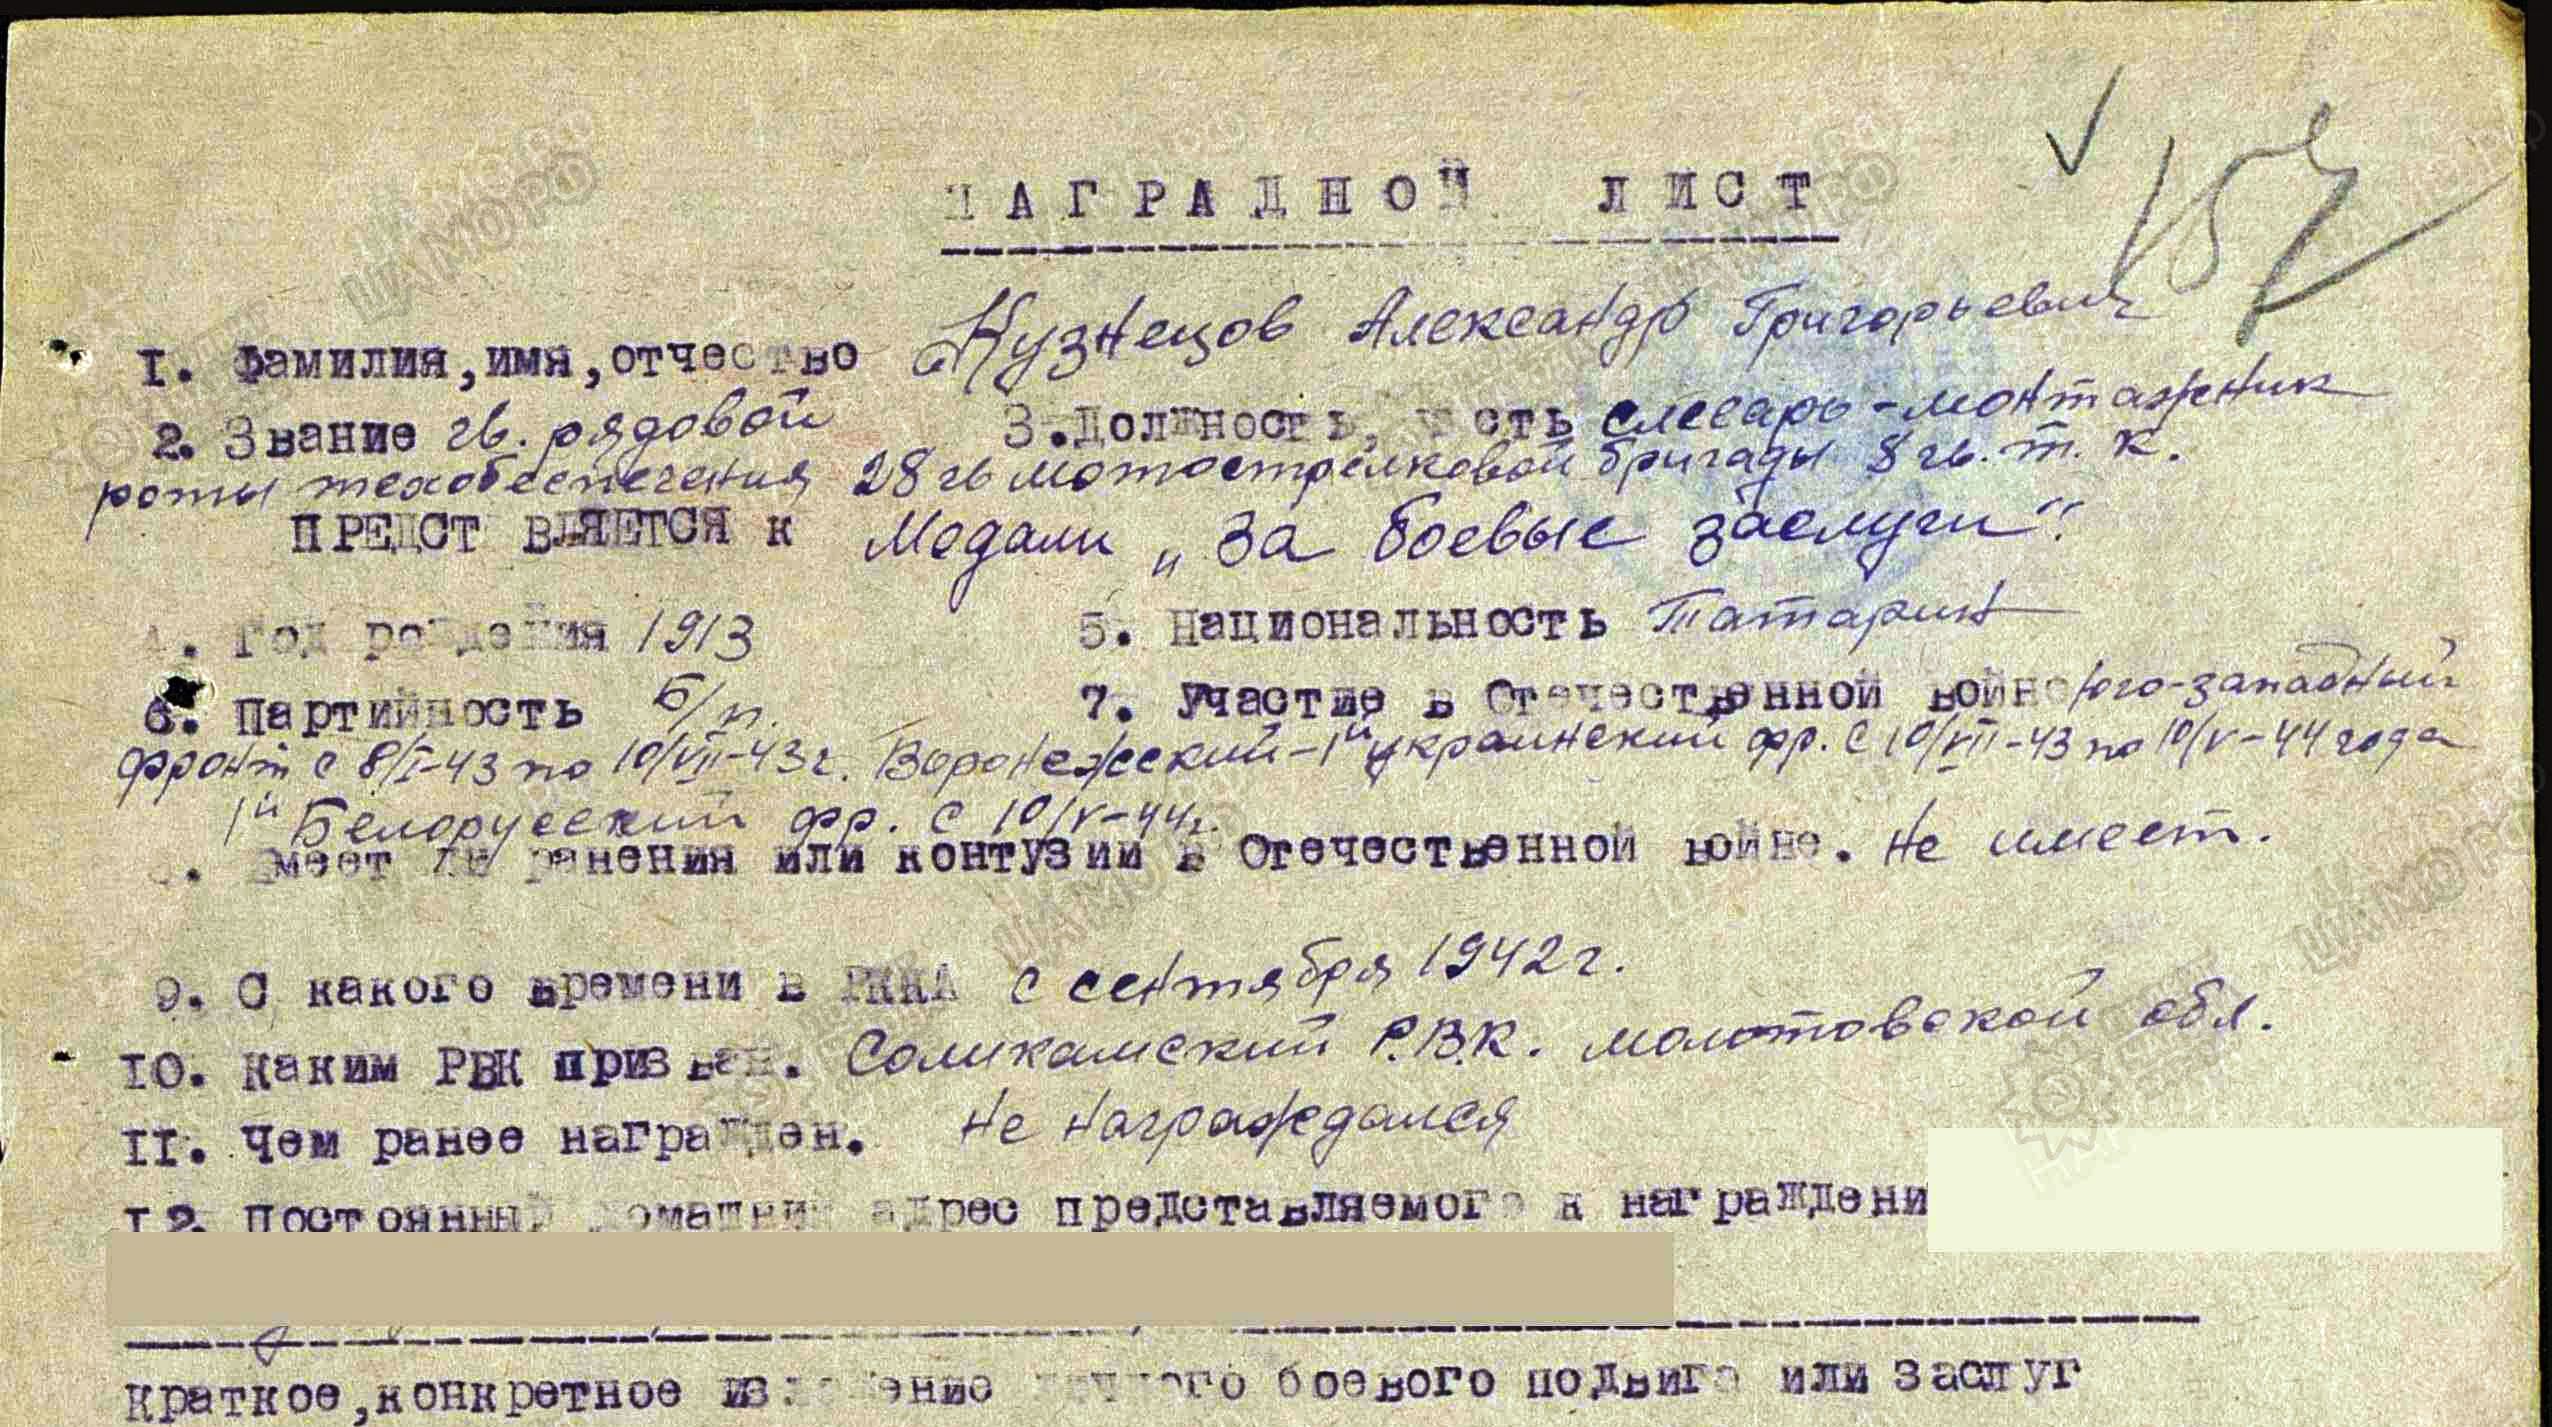 157
НАГРАДНОЙ ЛИСТ
1. Фамилия, имя, отчество Кузнецов Александр Григорьевич
2. Звание гв. рядовой 3. Должность, часть слесарь-монтажник
роты техобеспечения 28 гв мотострелковой бригады 8 гв. т. к.
ПРЕДСТАВЛЯЕТСЯ К Медали „За боевые заслуги".
4. Год рождения 1913 5. Национальность Татарин
6. Партийность Б/п. 7. Участие в Отечественной войне юго-западный
фронт с 8/I-43 по 10/VII-43г. Воронежский-1й украинский фр. с 10/VII-43 по 10/V-44 года
1й Белорусский фр. с 10/V-44г.
8. Имеет ли ранения или контузии в Отечественной войне. не имеет.
9. С какого времени в РККА с сентября 1942 г.
10. Каким РВК призван. Соликамский Р.В.К. молотовской обл.
11. Чем ранее награжден. не награждался
12. Постоянный домашний адрес представляемого к награждени
Краткое, конкретное изложение личного боевого подвига или заслуг